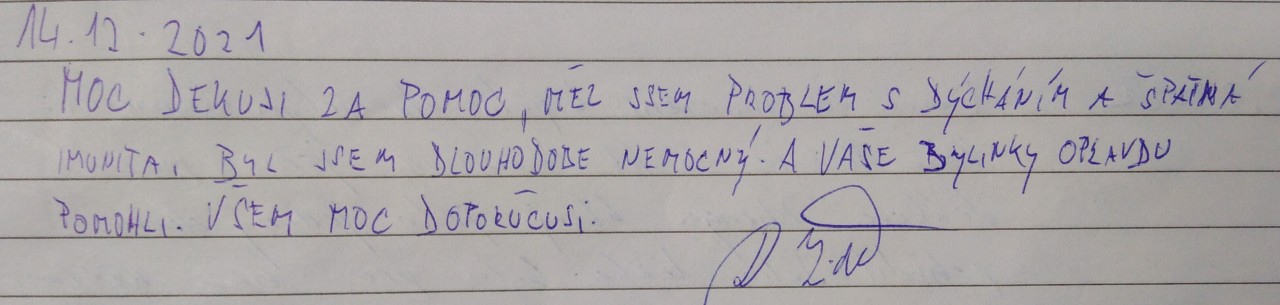 14.12.2021
MOC DEKUJI ZA POMOC, MĚL JSEM PROBLEM S DÝCHÁNÍM A ŠPATNÁ
IMUNITA. BYL JSEM DLOUHODOBE NEMOCNÝ. A VAŠE BYLINKY OPRAVDU
POMOHLI. VŠEM MOC DOPORUČUJI.